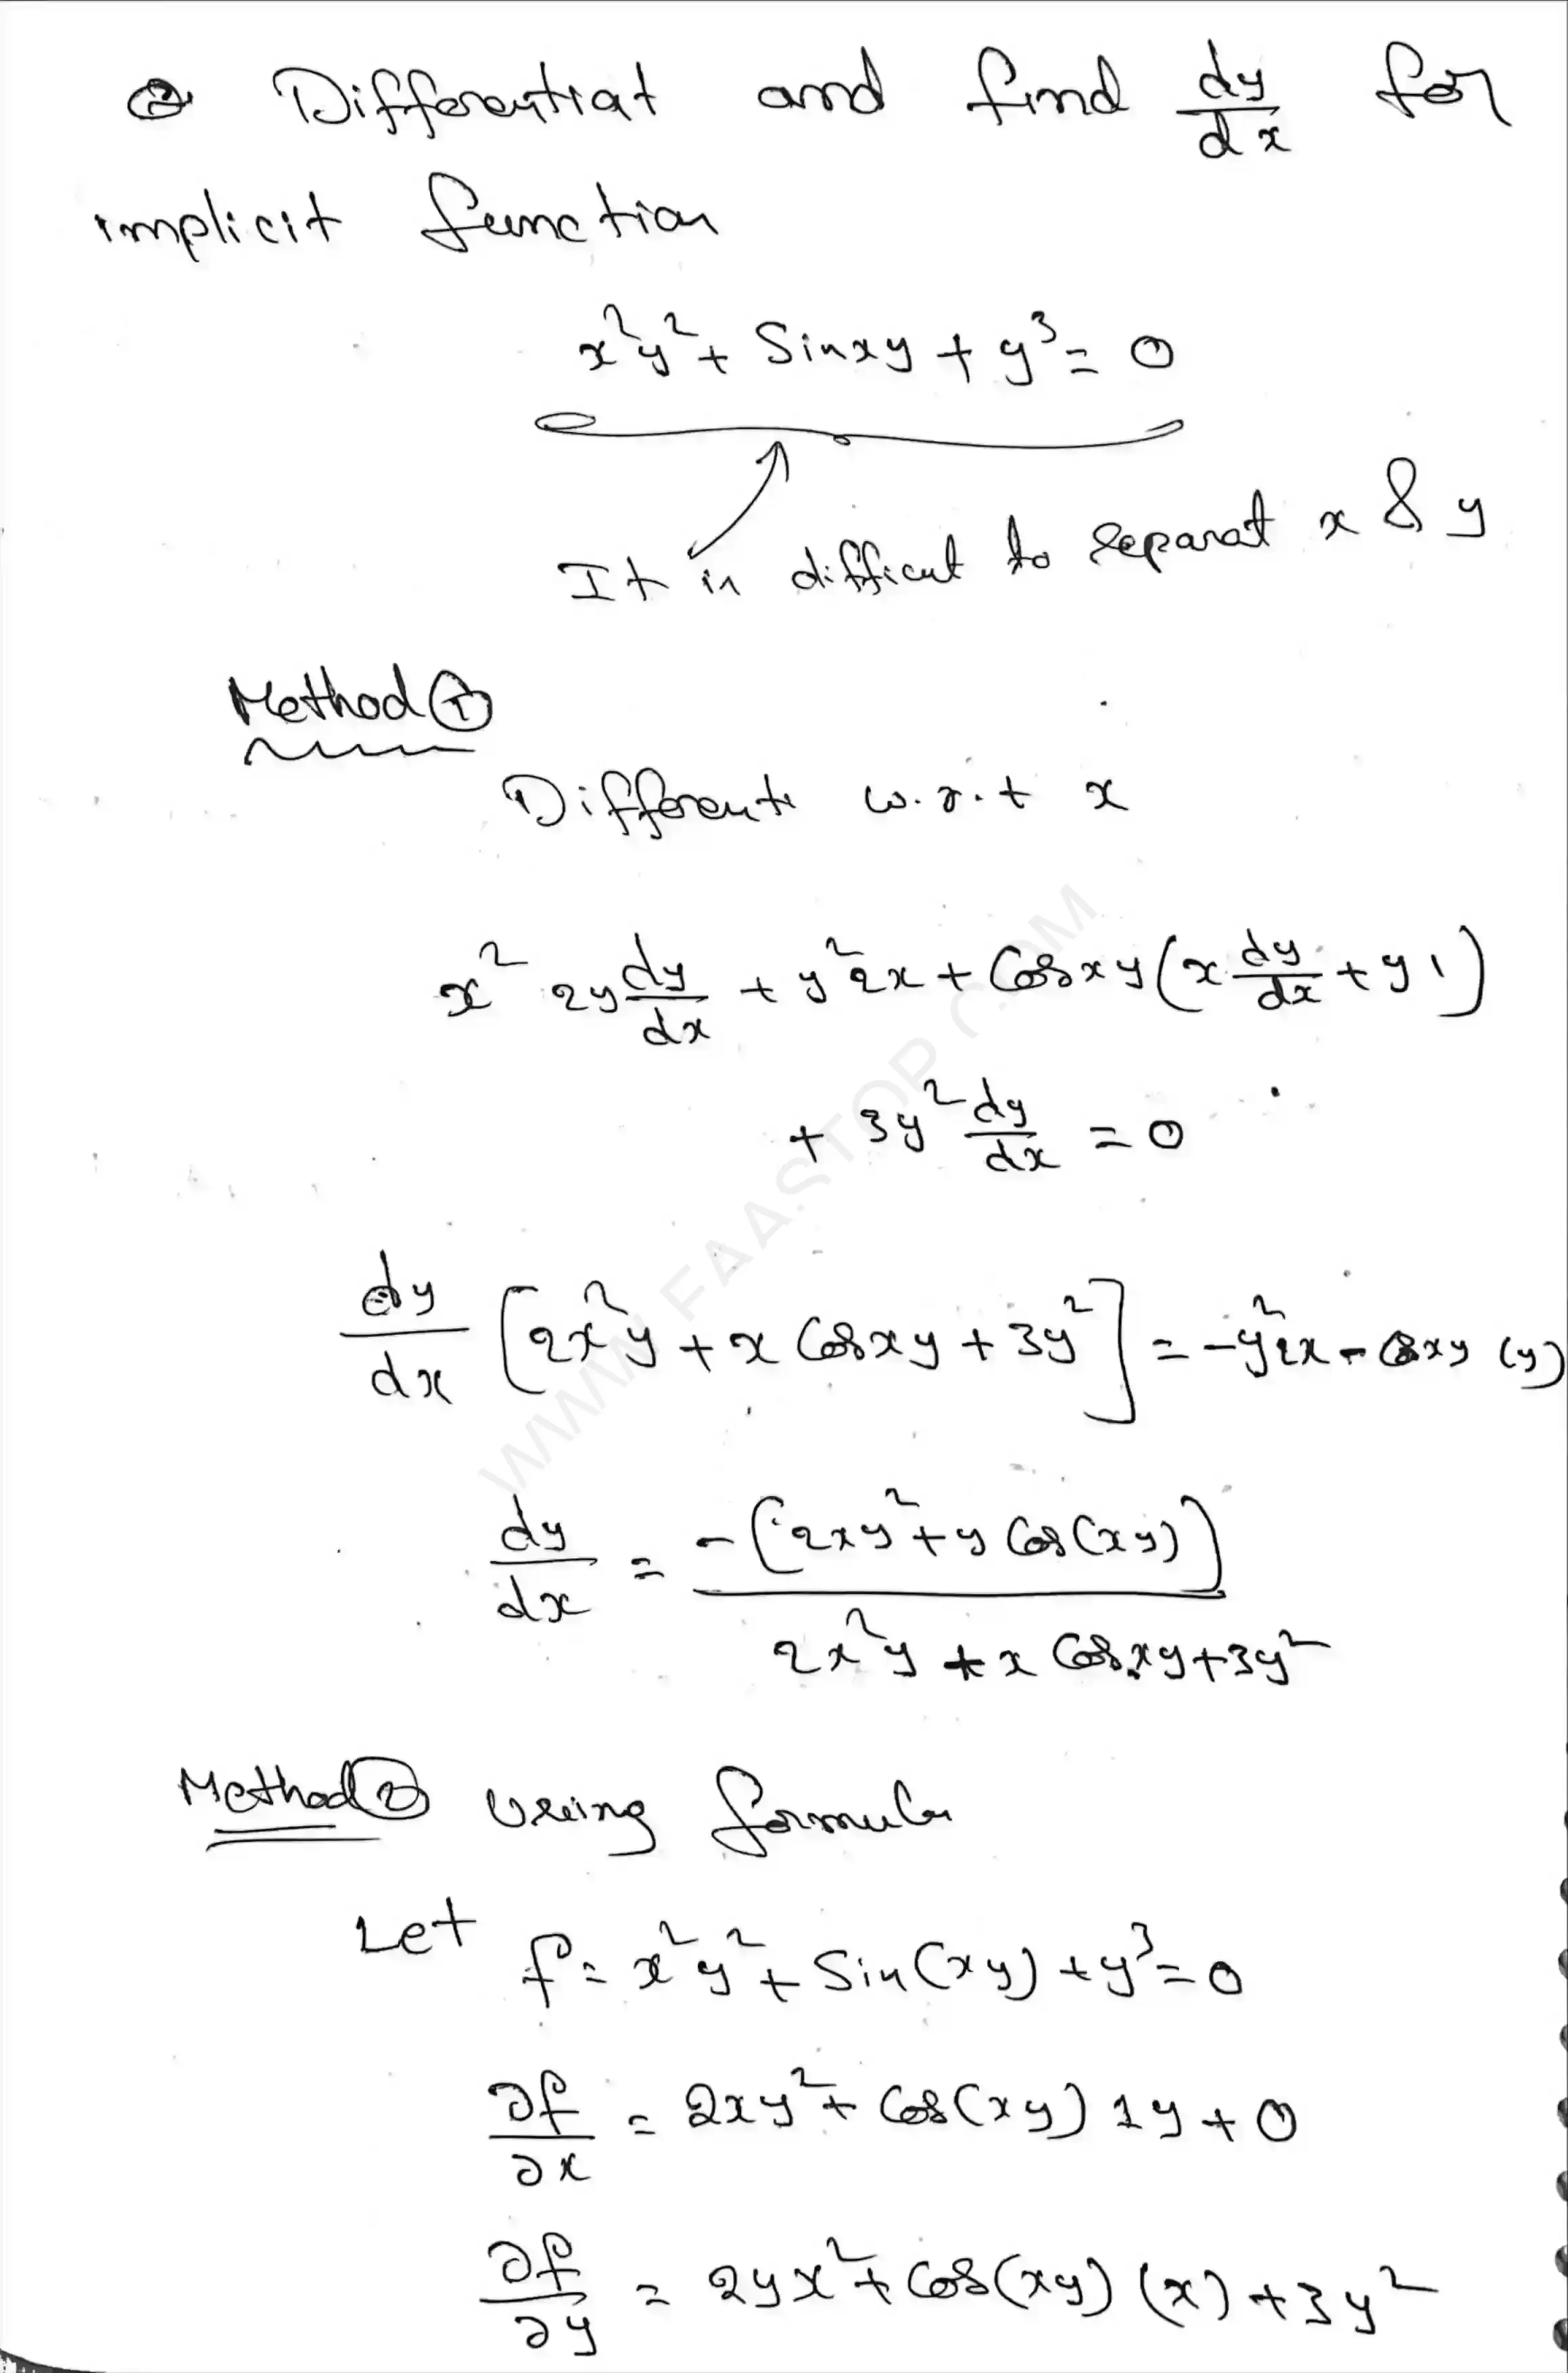 ② Differentiat and find dy/dx for
implicit function
x²y² + Sinxy + y³ = 0
It is difficut to separat x & y
Method ①
Different w.r.t x
x² 2y dy/dx + y² 2x + Cosxy (x dy/dx + y 1)
+ 3y² dy/dx = 0
dy/dx [2x²y + x Cosxy + 3y²] = -y²2x - Cosxy (y)
dy/dx = -(2xy² + y Cos(xy)) / 2x²y + x Cosxy + 3y²
Method ② Using formula
Let f = x²y² + Sin(xy) + y³ = 0
∂f/∂x = 2xy² + Cos(xy) 1y + 0
∂f/∂y = 2yx² + Cos(xy) (x) + 3y²
WWW.FAASTOP.COM